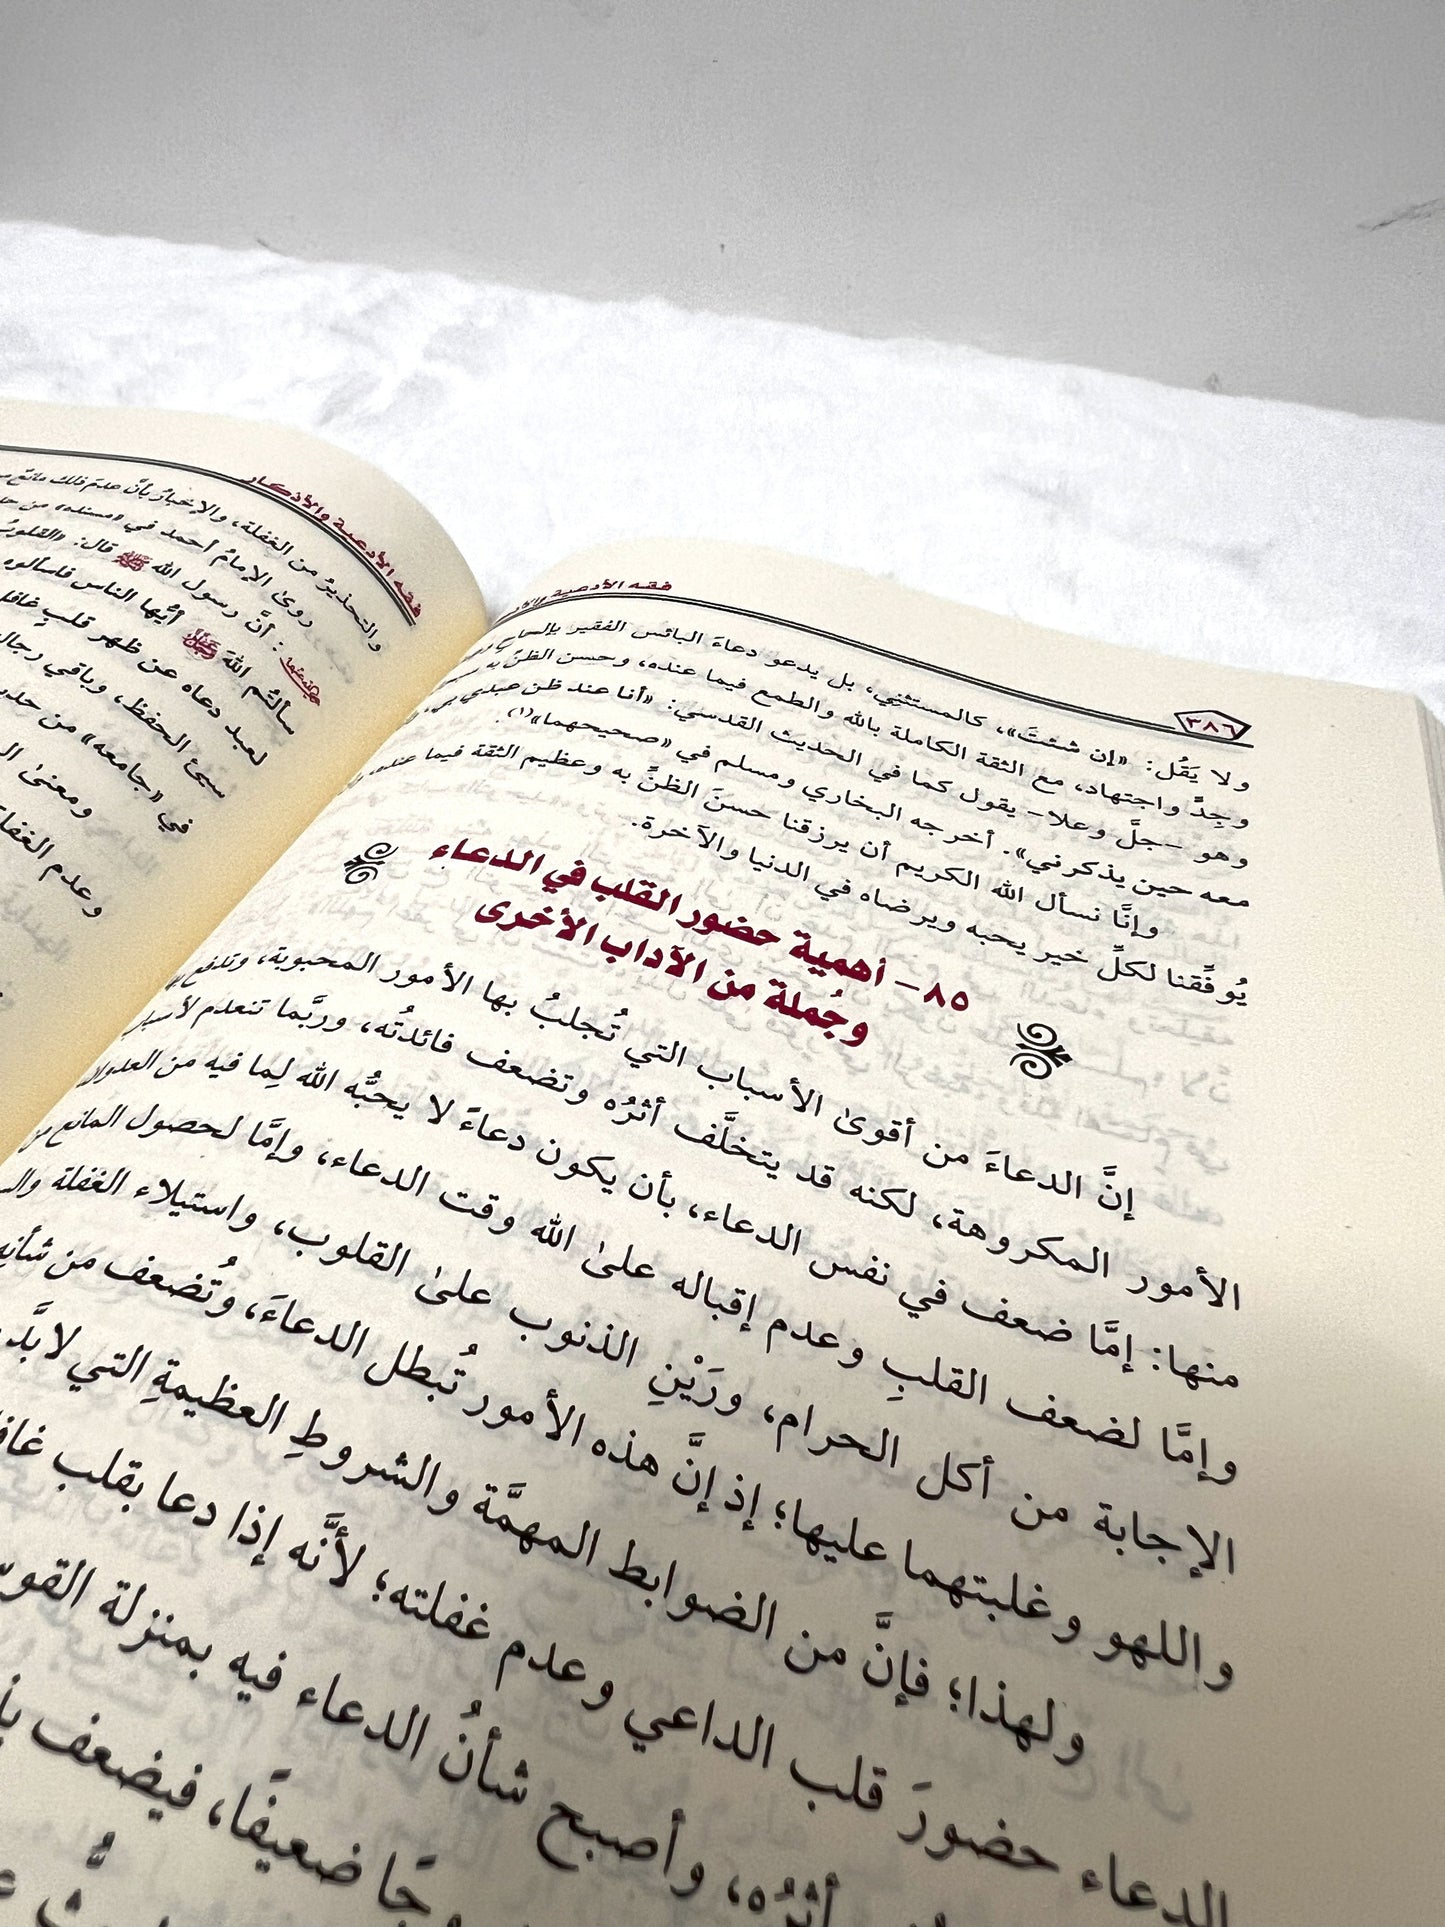 فقه الأدعية والأذكار
٣٨٦
ولا يَقُل: «إن شئتَ»، كالمستثني، بل يدعو دعاءَ البائس الفقير بإلحاح
وجِدٍّ واجتهاد، مع الثقة الكاملة بالله والطمع فيما عنده، وحسن الظنِّ به
وهو -جلَّ وعلا- يقول كما في الحديث القدسي: «أنا عند ظن عبدي بي،
معه حين يذكرني». أخرجه البخاري ومسلم في «صحيحهما»(١).
وإنَّا نسأل الله الكريم أن يرزقنا حسنَ الظنِّ به وعظيم الثقة فيما عنده،
يُوفِّقنا لكلِّ خير يحبه ويرضاه في الدنيا والآخرة.
٨٥ – أهمية حضور القلب في الدعاء
وجُملة من الآداب الأخرى
إنَّ الدعاءَ من أقوىٰ الأسباب التي تُجلبُ بها الأمور المحبوبة، وتدفع
الأمور المكروهة، لكنه قد يتخلَّف أثرُه وتضعف فائدتُه، وربَّما تنعدم لأسباب
منها: إمَّا ضعف في نفس الدعاء، بأن يكون دعاءً لا يحبُّه الله لِما فيه من العدوان
وإمَّا لضعف القلبِ وعدم إقباله علىٰ الله وقت الدعاء، وإمَّا لحصول المانع من
الإجابة من أكل الحرام، ورَيْنِ الذنوب علىٰ القلوب، واستيلاء الغفلة
واللهو وغلبتهما عليها؛ إذ إنَّ هذه الأمور تُبطل الدعاءَ، وتُضعف من شأنه
ولهذا؛ فإنَّ من الضوابط المهمَّة والشروطِ العظيمةِ التي لابدَّ
الدعاء حضورَ قلب الداعي وعدم غفلته؛ لأنَّه إذا دعا بقلب
أثرُه، وأصبح شأنُ الدعاء فيه بمنزلة
ضعيفًا، فيضعف
فقه الأدعية والأذكار
والتحذيرُ من الغفلة، والإخبارُ بأنَّ عدمَ ذلك مانعٌ
روىٰ الإمامُ أحمد في «مسنده» من
: أنَّ رسول الله ﷺ قال: «القلوبُ
سألتُم اللهَ أيُّها الناس فاسألوه
لعبد دعاه عن ظهر قلبٍ غافل
سيئ الحفظ، وباقي رجال
في «جامعه» من
ومعنىٰ
وعدم